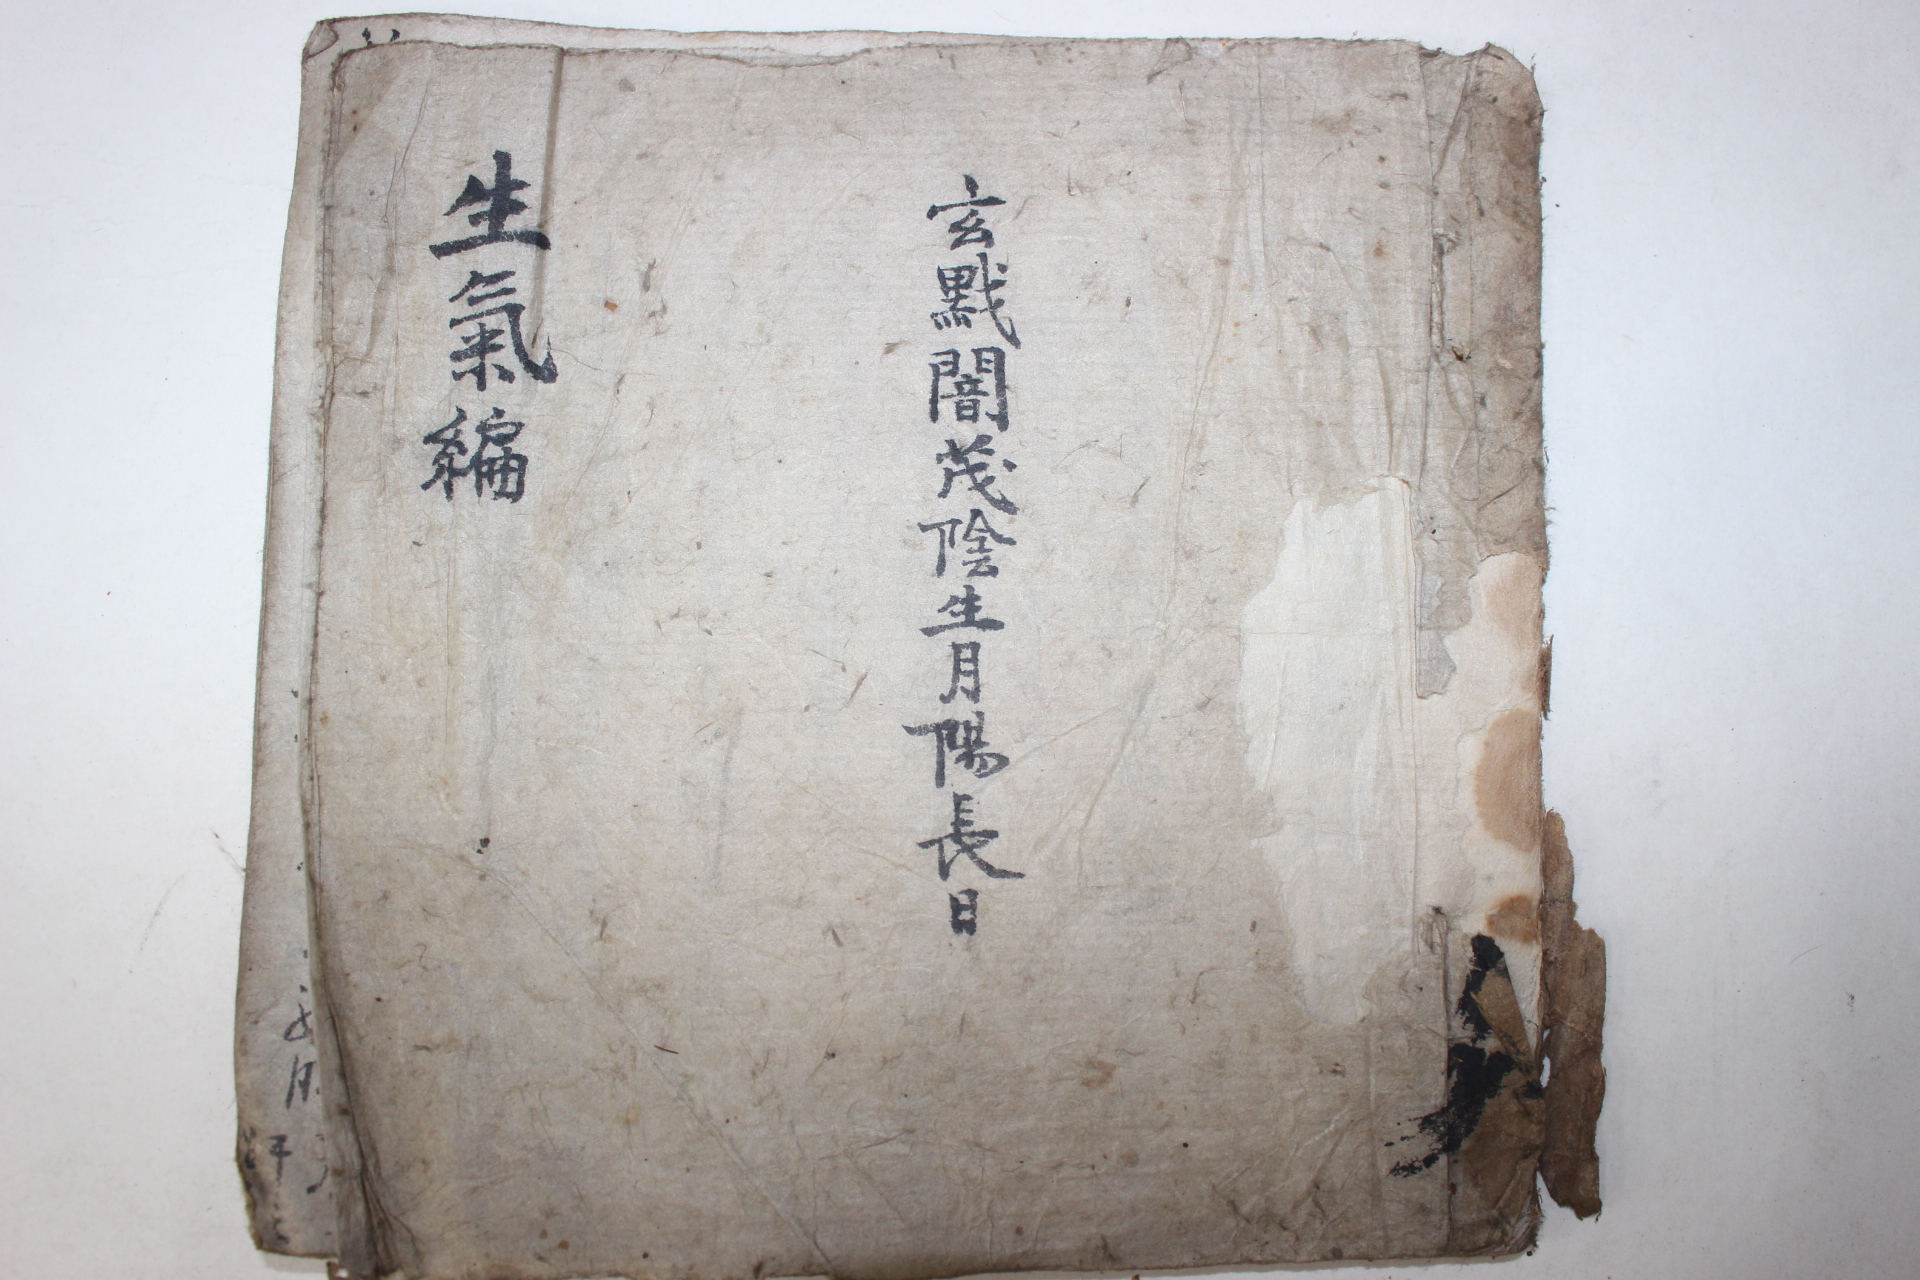 玄黓閹茂陰生月陽長日
生氣編